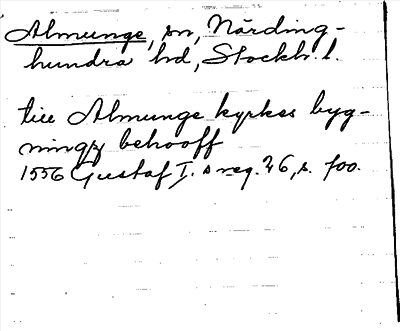 Almunge, sn, Närding-
hundra hd, Stockh. l.
till Almunge kyrkes byg-
ningz behooff
1556 Gustaf I. s reg. 26, s. 700.